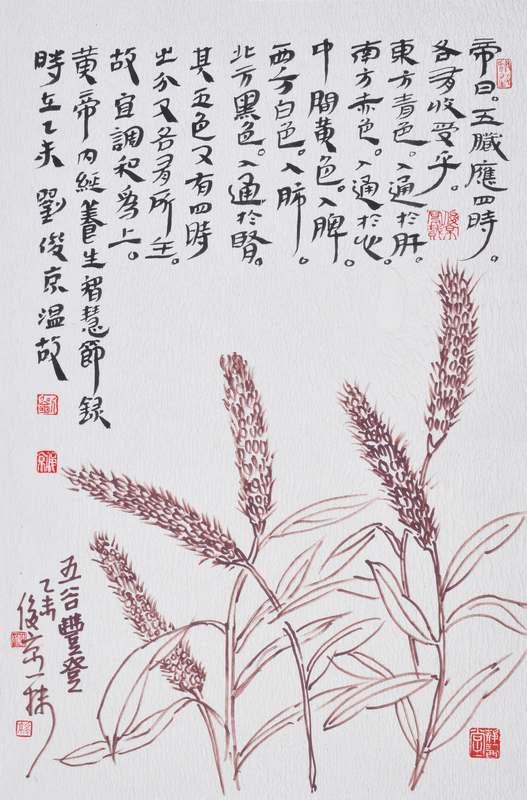 帝曰。五臟應四時。
各有收受乎。
東方青色。入通於肝。
南方赤色。入通於心。
中間黃色。入脾。
西方白色。入肺。
北方黑色。入通於腎。
其五色又有四時
之分又各有所主。
故宜調和爲上。
黃帝內經養生智慧節録
時在乙未 劉俊京温故
五谷豐登
乙未
俊京一